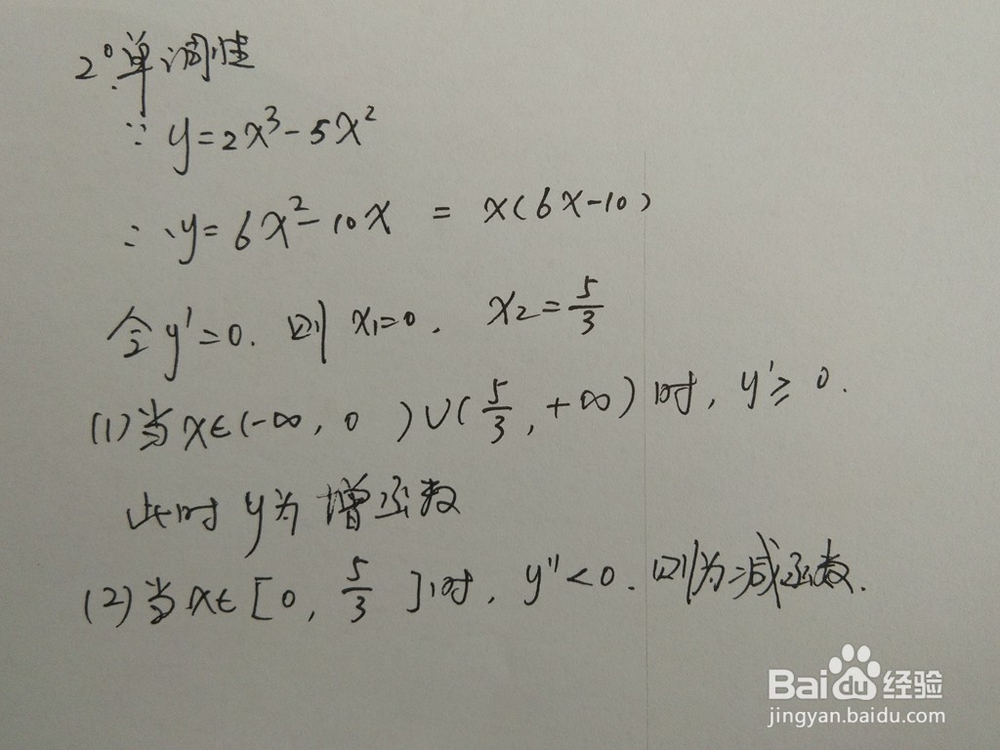 2° 单调性
∵ y=2x³-5x²
∴ y=6x²-10x = x(6x-10)
令y'=0. 则 x₁=0. x₂=5/3
(1)当x∈(-∞, 0 )∪(5/3, +∞)时, y'≥0.
此时 y为 增函数
(2)当x∈[0, 5/3 ]时, y''<0. 则为减函数.
Baidu经验
jingyan.baidu.com